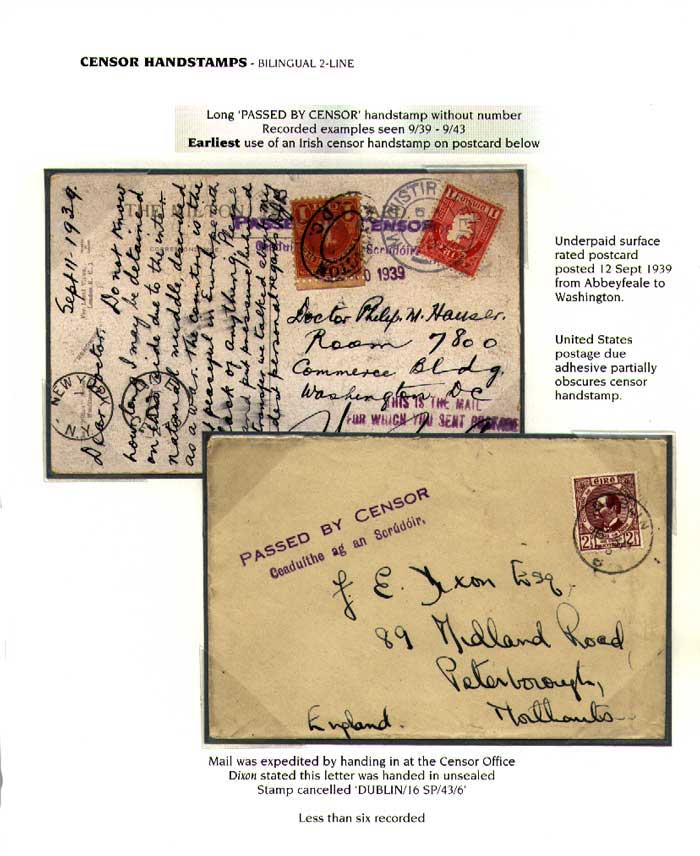 CENSOR HANDSTAMPS - BILINGUAL 2-LINE
Long 'PASSED BY CENSOR' handstamp without number
Recorded examples seen 9/39 - 9/43
Earliest use of an Irish censor handstamp on postcard below
Sept 11 - 1939.
Dear Doctor. Do not know
how long I may be detained
on this side due to the inter-
national muddle, described
as a war. The country is the
PASSED CENSOR
1939
Doctor Philip M. Hauser.
Room 7800
Commerce Bldg.
Washington DC
THIS IS THE MAIL
FOR WHICH YOU SENT POSTAGE
NEW YORK
Underpaid surface
rated postcard
posted 12 Sept 1939
from Abbeyfeale to
Washington.
United States
postage due
adhesive partially
obscures censor
handstamp.
PASSED BY CENSOR
Ceaduithe ag an Scrúdóir.
ÉIRE
J. E. Dixon Esq,
89 Midland Road,
Peterborough,
Northants
England.
Mail was expedited by handing in at the Censor Office
Dixon stated this letter was handed in unsealed
Stamp cancelled 'DUBLIN/16 SP/43/6'
Less than six recorded